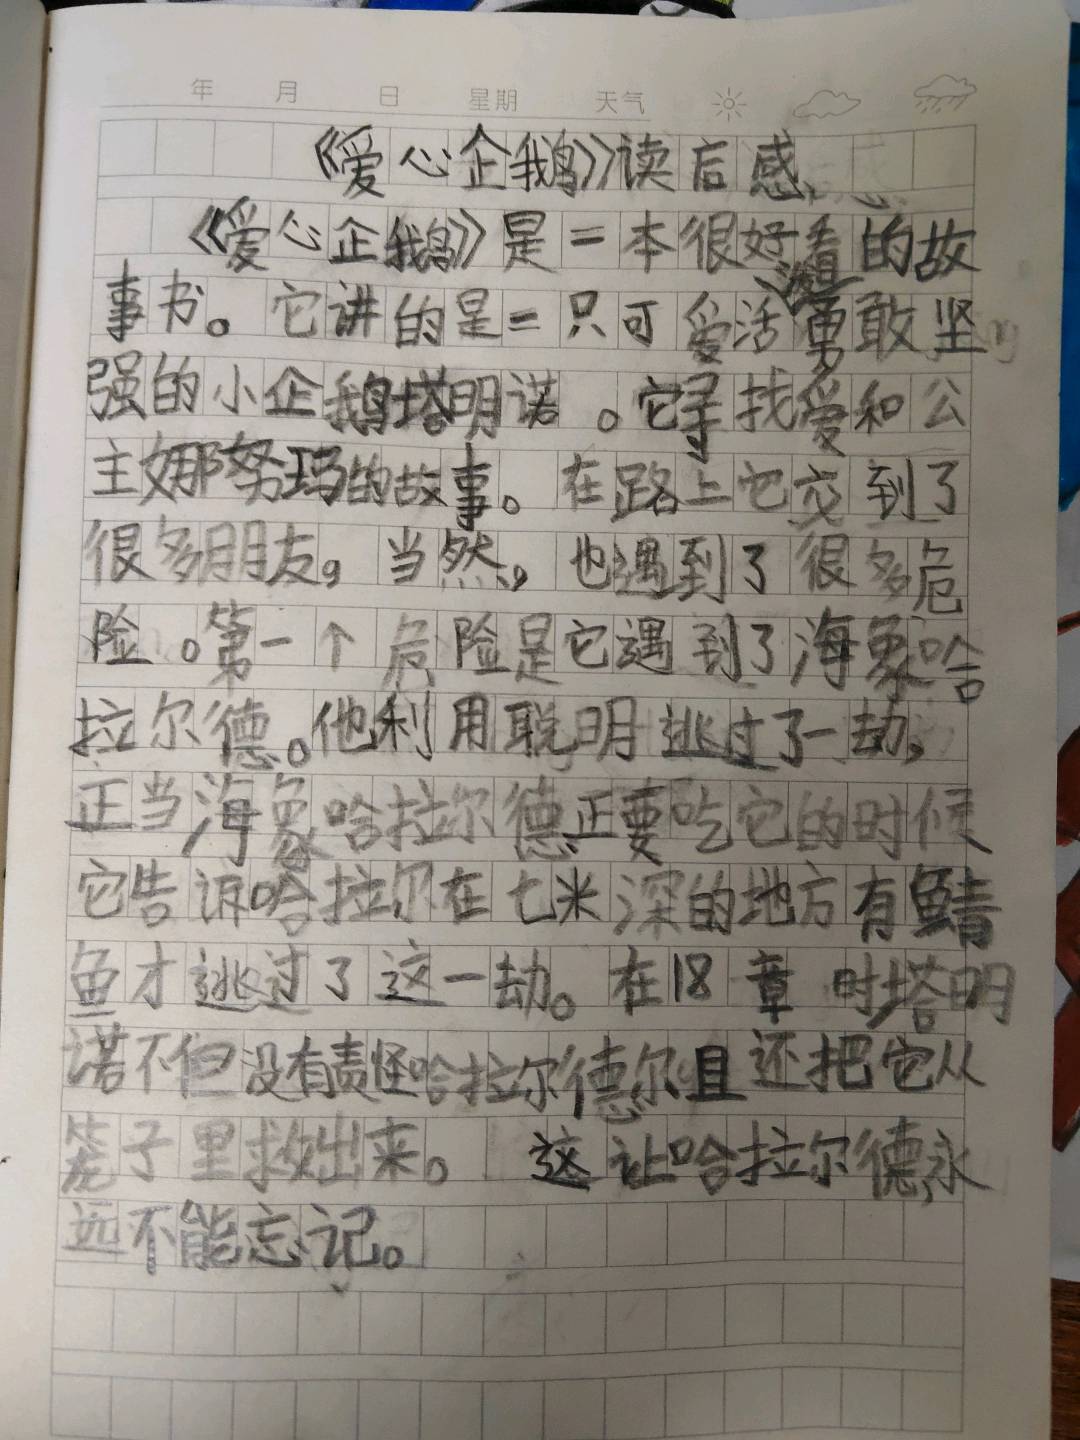 年 月 日 星期 天气
《爱心企鹅》读后感
《爱心企鹅》是一本很好看的故
事书。它讲的是一只可爱活勇敢坚
强的小企鹅塔明诺。它寻找爱和公
主娜努玛的故事。在路上它交到了
很多朋友，当然，也遇到了很多危
险。第一个危险是它遇到了海象哈
拉尔德。他利用聪明逃过了一劫，
正当海象哈拉尔德正要吃它的时候
它告诉哈拉尔在七米深的地方有鲭
鱼才逃过了这一劫。在18章时塔明
诺不但没有责怪哈拉尔德尔且还把它从
笼子里救出来。这让哈拉尔德永
远不能忘记。